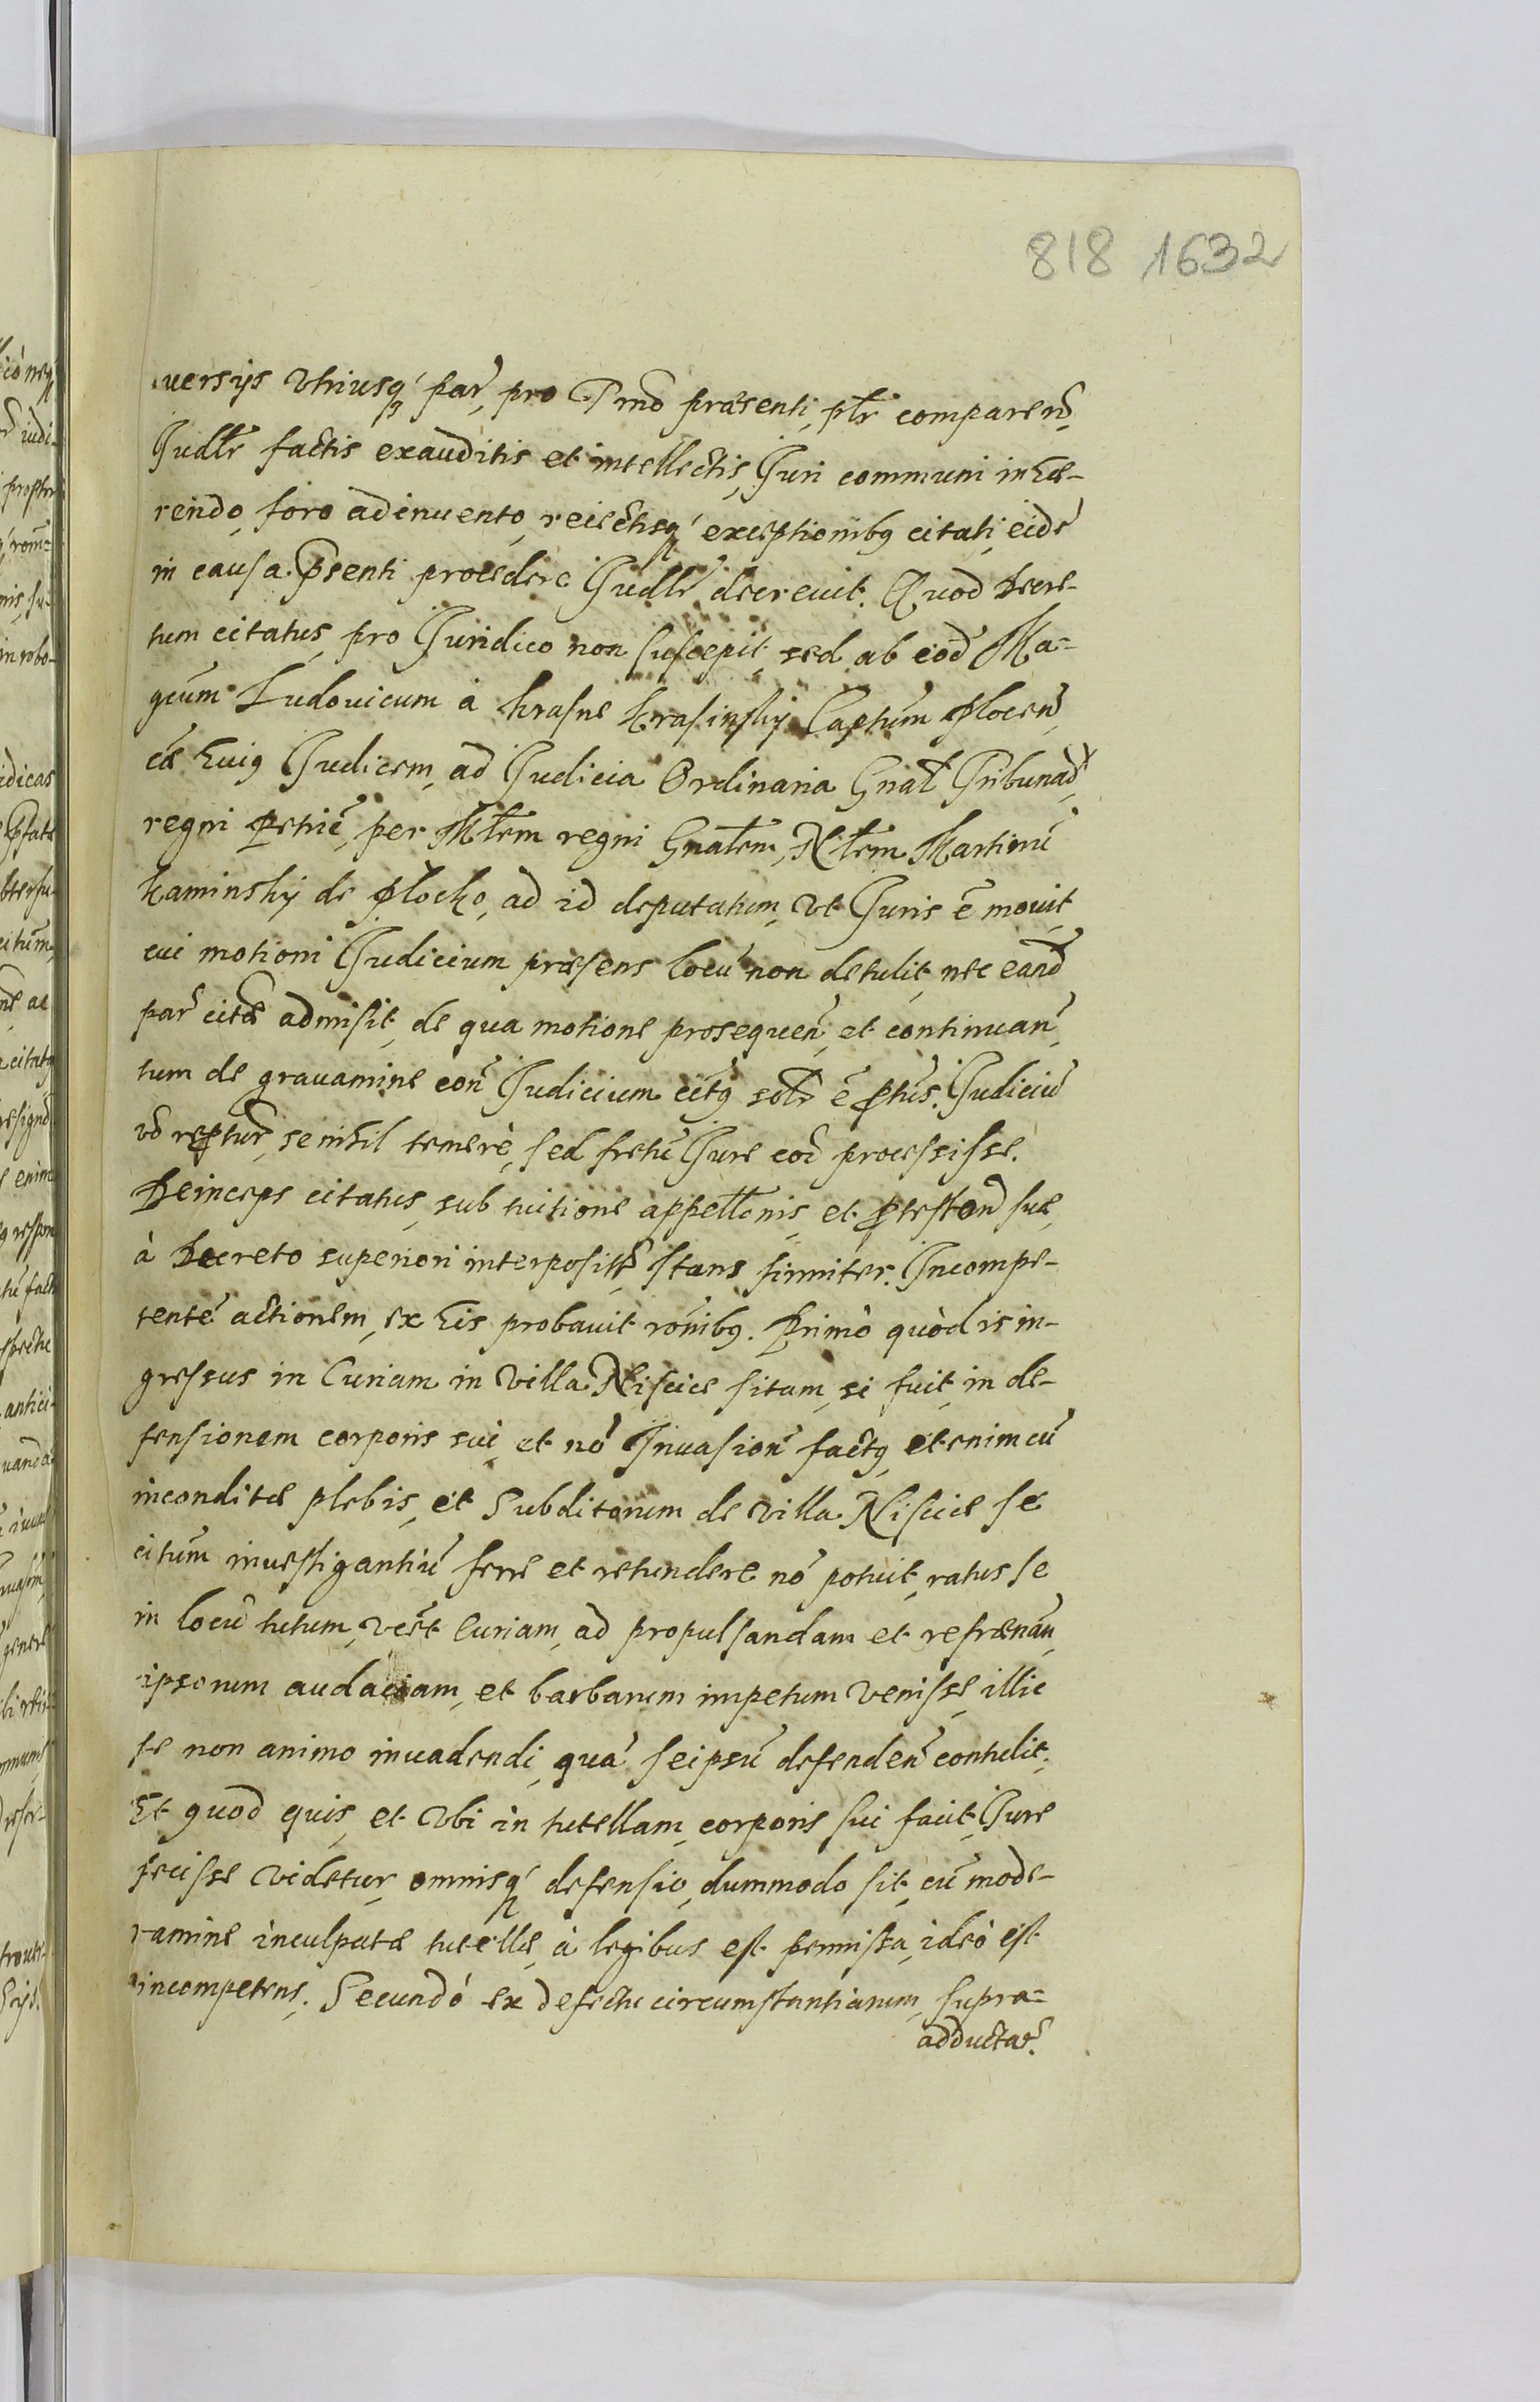 818 1632
uersijs Vtriusq́ꝫ par̃, pro Tr̃mo præsenti, pl̃r comparen̄,
Judl̃r factis exauditis et intellectis, Juri communi inhæ-
rendo, foro adinuento, reiectisq́ꝫ exceptionibꝫ citati, eidē
in causa p̄senti procedere Judl̃r decreuit. Quod Decre-
tum citatus, pro Juridico non suscepit, sed ab eod̃ Ma-
gcum Ludouicum à Krasne Krasinsky Captum Plocen̄,
cæ huiꝫ Judicem, ad Judicia Ordinaria Gnal̃ Tribunal̃,
regni Petricē, per Mtem regni Gnalem, Ntem Martinū
Kaminsky de Plocko, ad id deputatum, Vt Juris ē mouit,
cui motioni Judicium præsens locū non detulit, nec eand̃
par̃ citæ admisit, de qua motione prosequen̄, et continuan̄,
tum de grauamine con̄ Judicium citꝫ sol̃r ē ꝓtus. Judiciū
vō reptur̃, se nihil temerè, sed fretū Jure eod̃ processisse.
Deinceps citatus, sub tuitione appellonis, et ꝓteston̄ suæ,
à Decreto superiori interposit̃ stans firmiter. Incompe-
tentē actionem, ex his probauit ronibꝫ. Primò quòd is in-
gressus in Curiam in Villa Niscice sitam, si fuit, in de-
fensionem corporis sui, et nō Inuasion̄ factꝫ, etenim cū
inconditæ plebis, et Subditorum de Villa Niscice se
citum inuestigantiū ferre et retundere nō potuit, ratus se
in locū tutum, Vt Curiam, ad propulsandam et refrænan̄,
ipsorum audaciam, et barbarum impetum Venisse, illic
se non animo inuadendi, quā seipsū defenden̄ contulit.
Et quod quis, et Vbi in tutellam corporis sui facit, Jure
fecisse Videtur, omnisq́ꝫ defensio, dummodo sit, cū mode-
ramine inculpatæ tutellæ, à legibus est permissa, ideò est
incompetens. Secundó ex defectu circumstantiarum supra-
adductar̃.